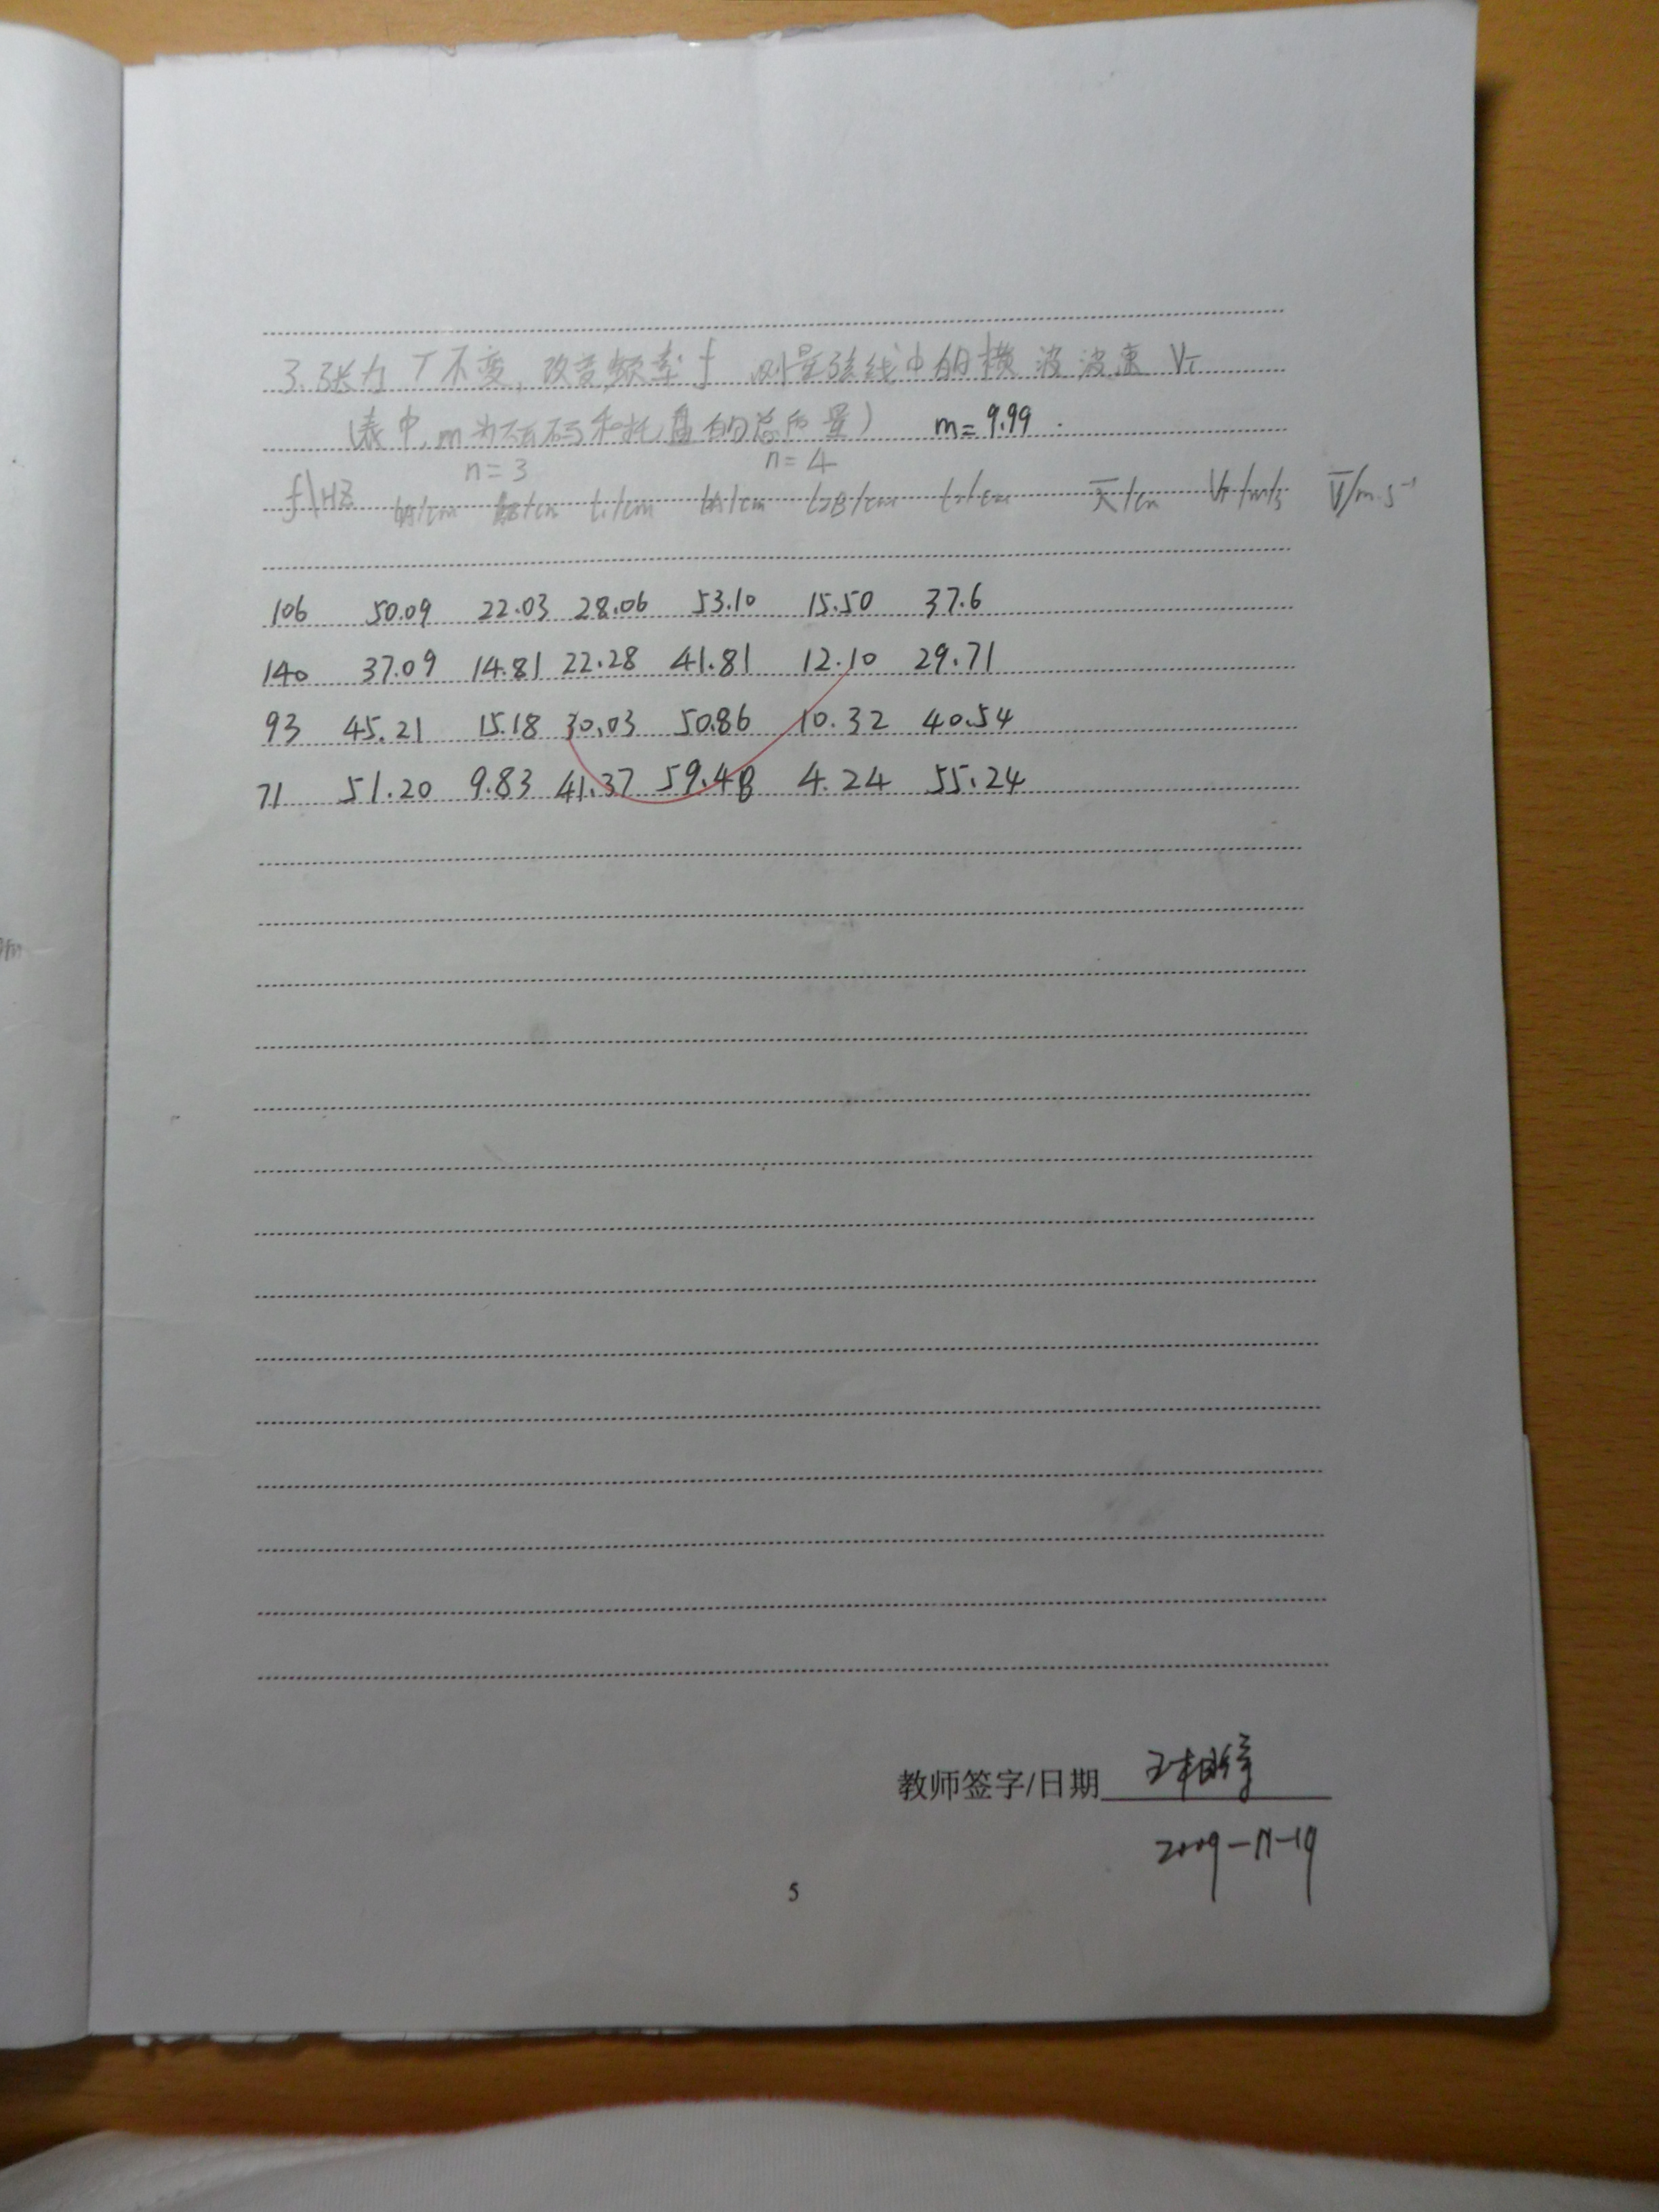 3.张力T不变,改变频率f 测量弦线中的横波波速 Vτ
(表中,m为砝码和托盘的总质量) m=9.99
n=3 n=4
f\HZ l1A/cm l1B/cm l1/cm l2A/cm l2B/cm l2/cm λ̅/cm Vτ/m/s V̅/m·s⁻¹
106 50.09 22.03 28.06 53.10 15.50 37.6
140 37.09 14.81 22.28 41.81 12.10 29.71
93 45.21 15.18 30.03 50.86 10.32 40.54
71 51.20 9.83 41.37 59.48 4.24 55.24
教师签字/日期
2009-11-19
5